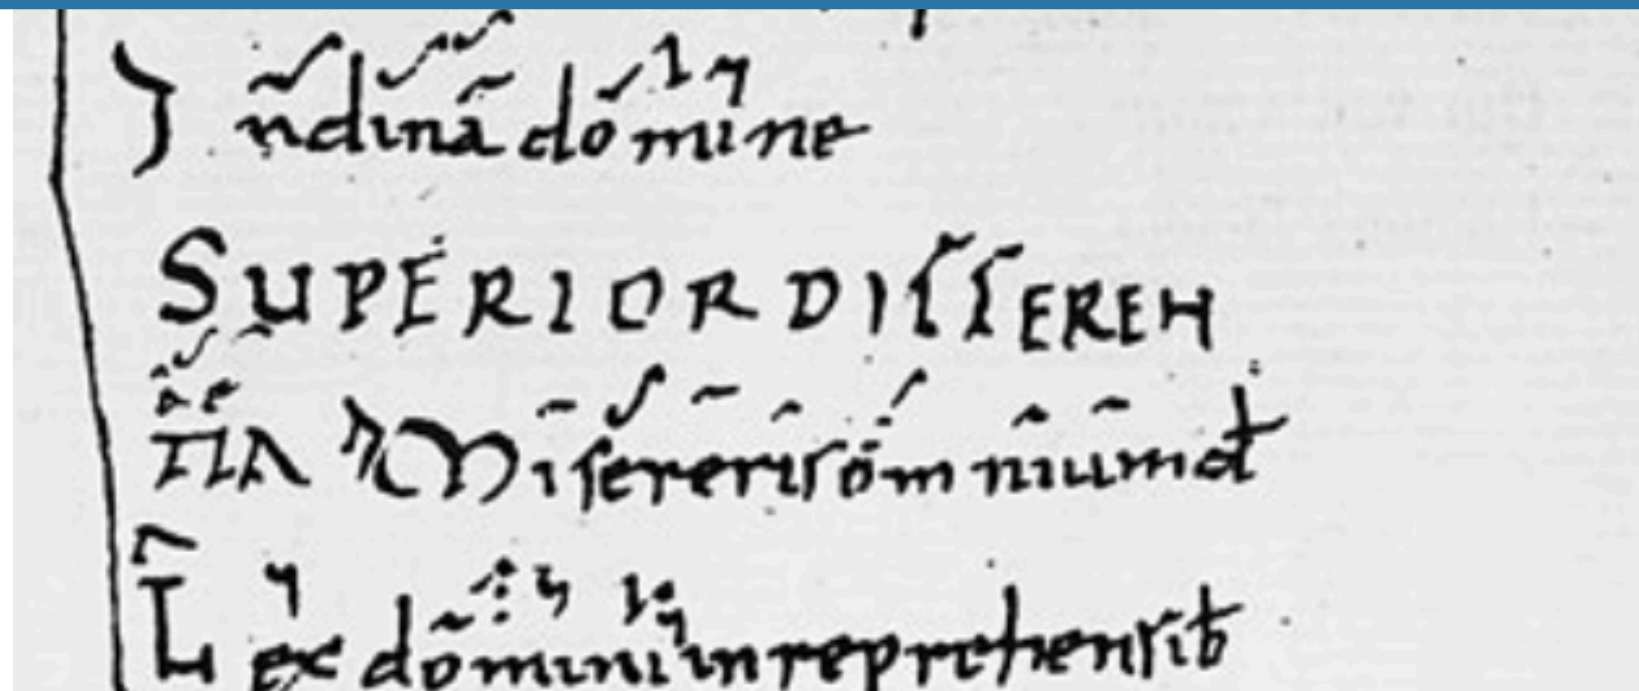 Inclina domine
SUPERIOR DIFFEREN
TIA Misereris omnium d
Lex domini inreprehensib